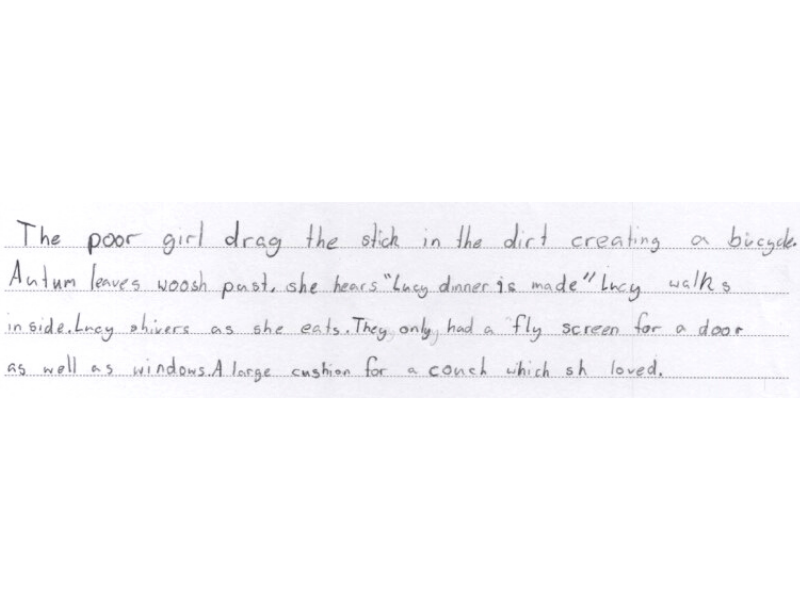 The poor girl drag the stick in the dirt creating a bicycle.
Autum leaves woosh past. she hears "Lucy dinner is made" Lucy walks
inside. Lucy shivers as she eats. They only had a fly screen for a door
as well as windows. A large cushion for a couch which sh loved.